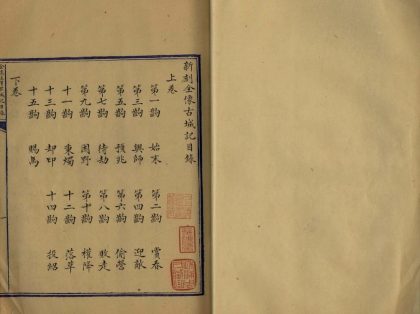 新刻全像古城記目錄
上卷
第一齣 始末 第二齣 賞春
第三齣 興師 第四齣 迎敵
第五齣 預兆 第六齣 偷營
第七齣 待劫 第八齣 敗走
第九齣 困野 第十齣 權降
十一齣 秉燭 十二齣 落草
十三齣 却印 十四齣 投紹
十五齣 賜馬
下卷